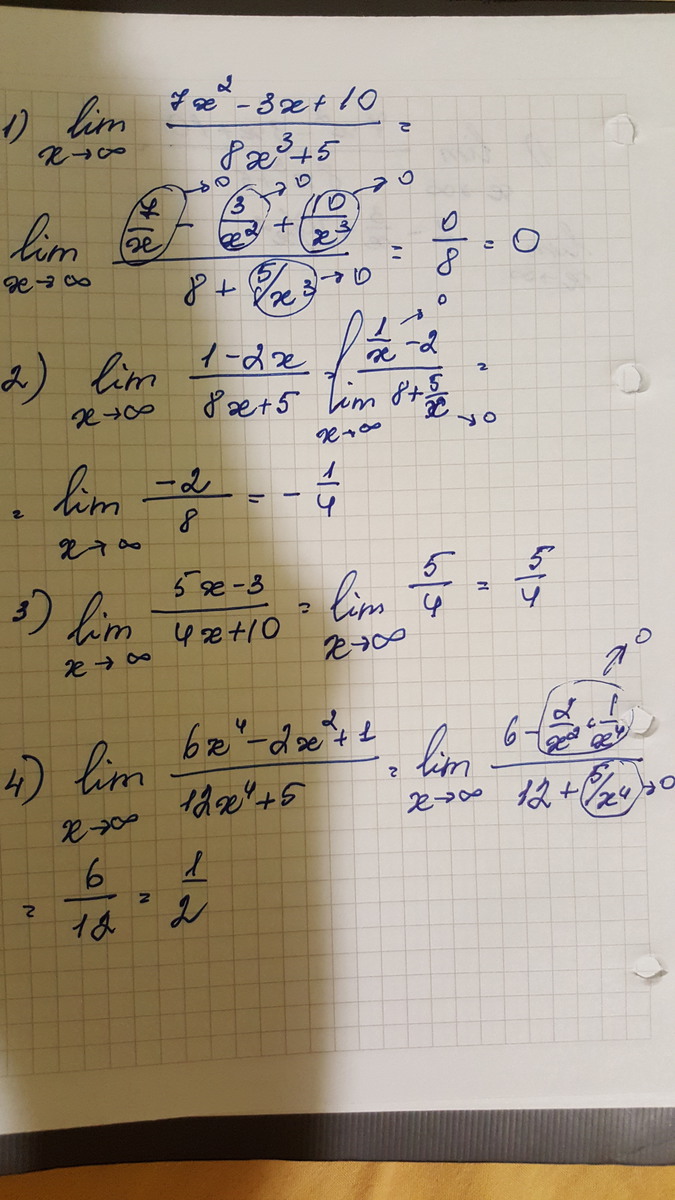 1) lim x→∞ (7x² - 3x + 10)/(8x³ + 5) =
lim x→∞ (7/x →0 - 3/x² →0 + 10/x³ →0)/(8 + 5/x³ →0) = 0/8 = 0
2) lim x→∞ (1 - 2x)/(8x + 5) = lim x→∞ (1/x →0 - 2)/(8 + 5/x →0) =
= lim x→∞ -2/8 = - 1/4
3) lim x→∞ (5x - 3)/(4x + 10) = lim x→∞ 5/4 = 5/4
4) lim x→∞ (6x⁴ - 2x² + 1)/(12x⁴ + 5) = lim x→∞ (6 - 2/x² + 1/x⁴ ↗0)/(12 + 5/x⁴ →0)
= 6/12 = 1/2